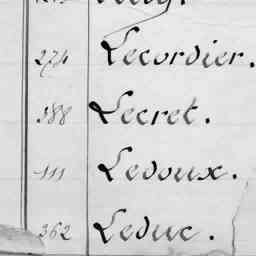 274 Lecordier.
388 Lecret.
111 Ledoux.
362 Leduc.